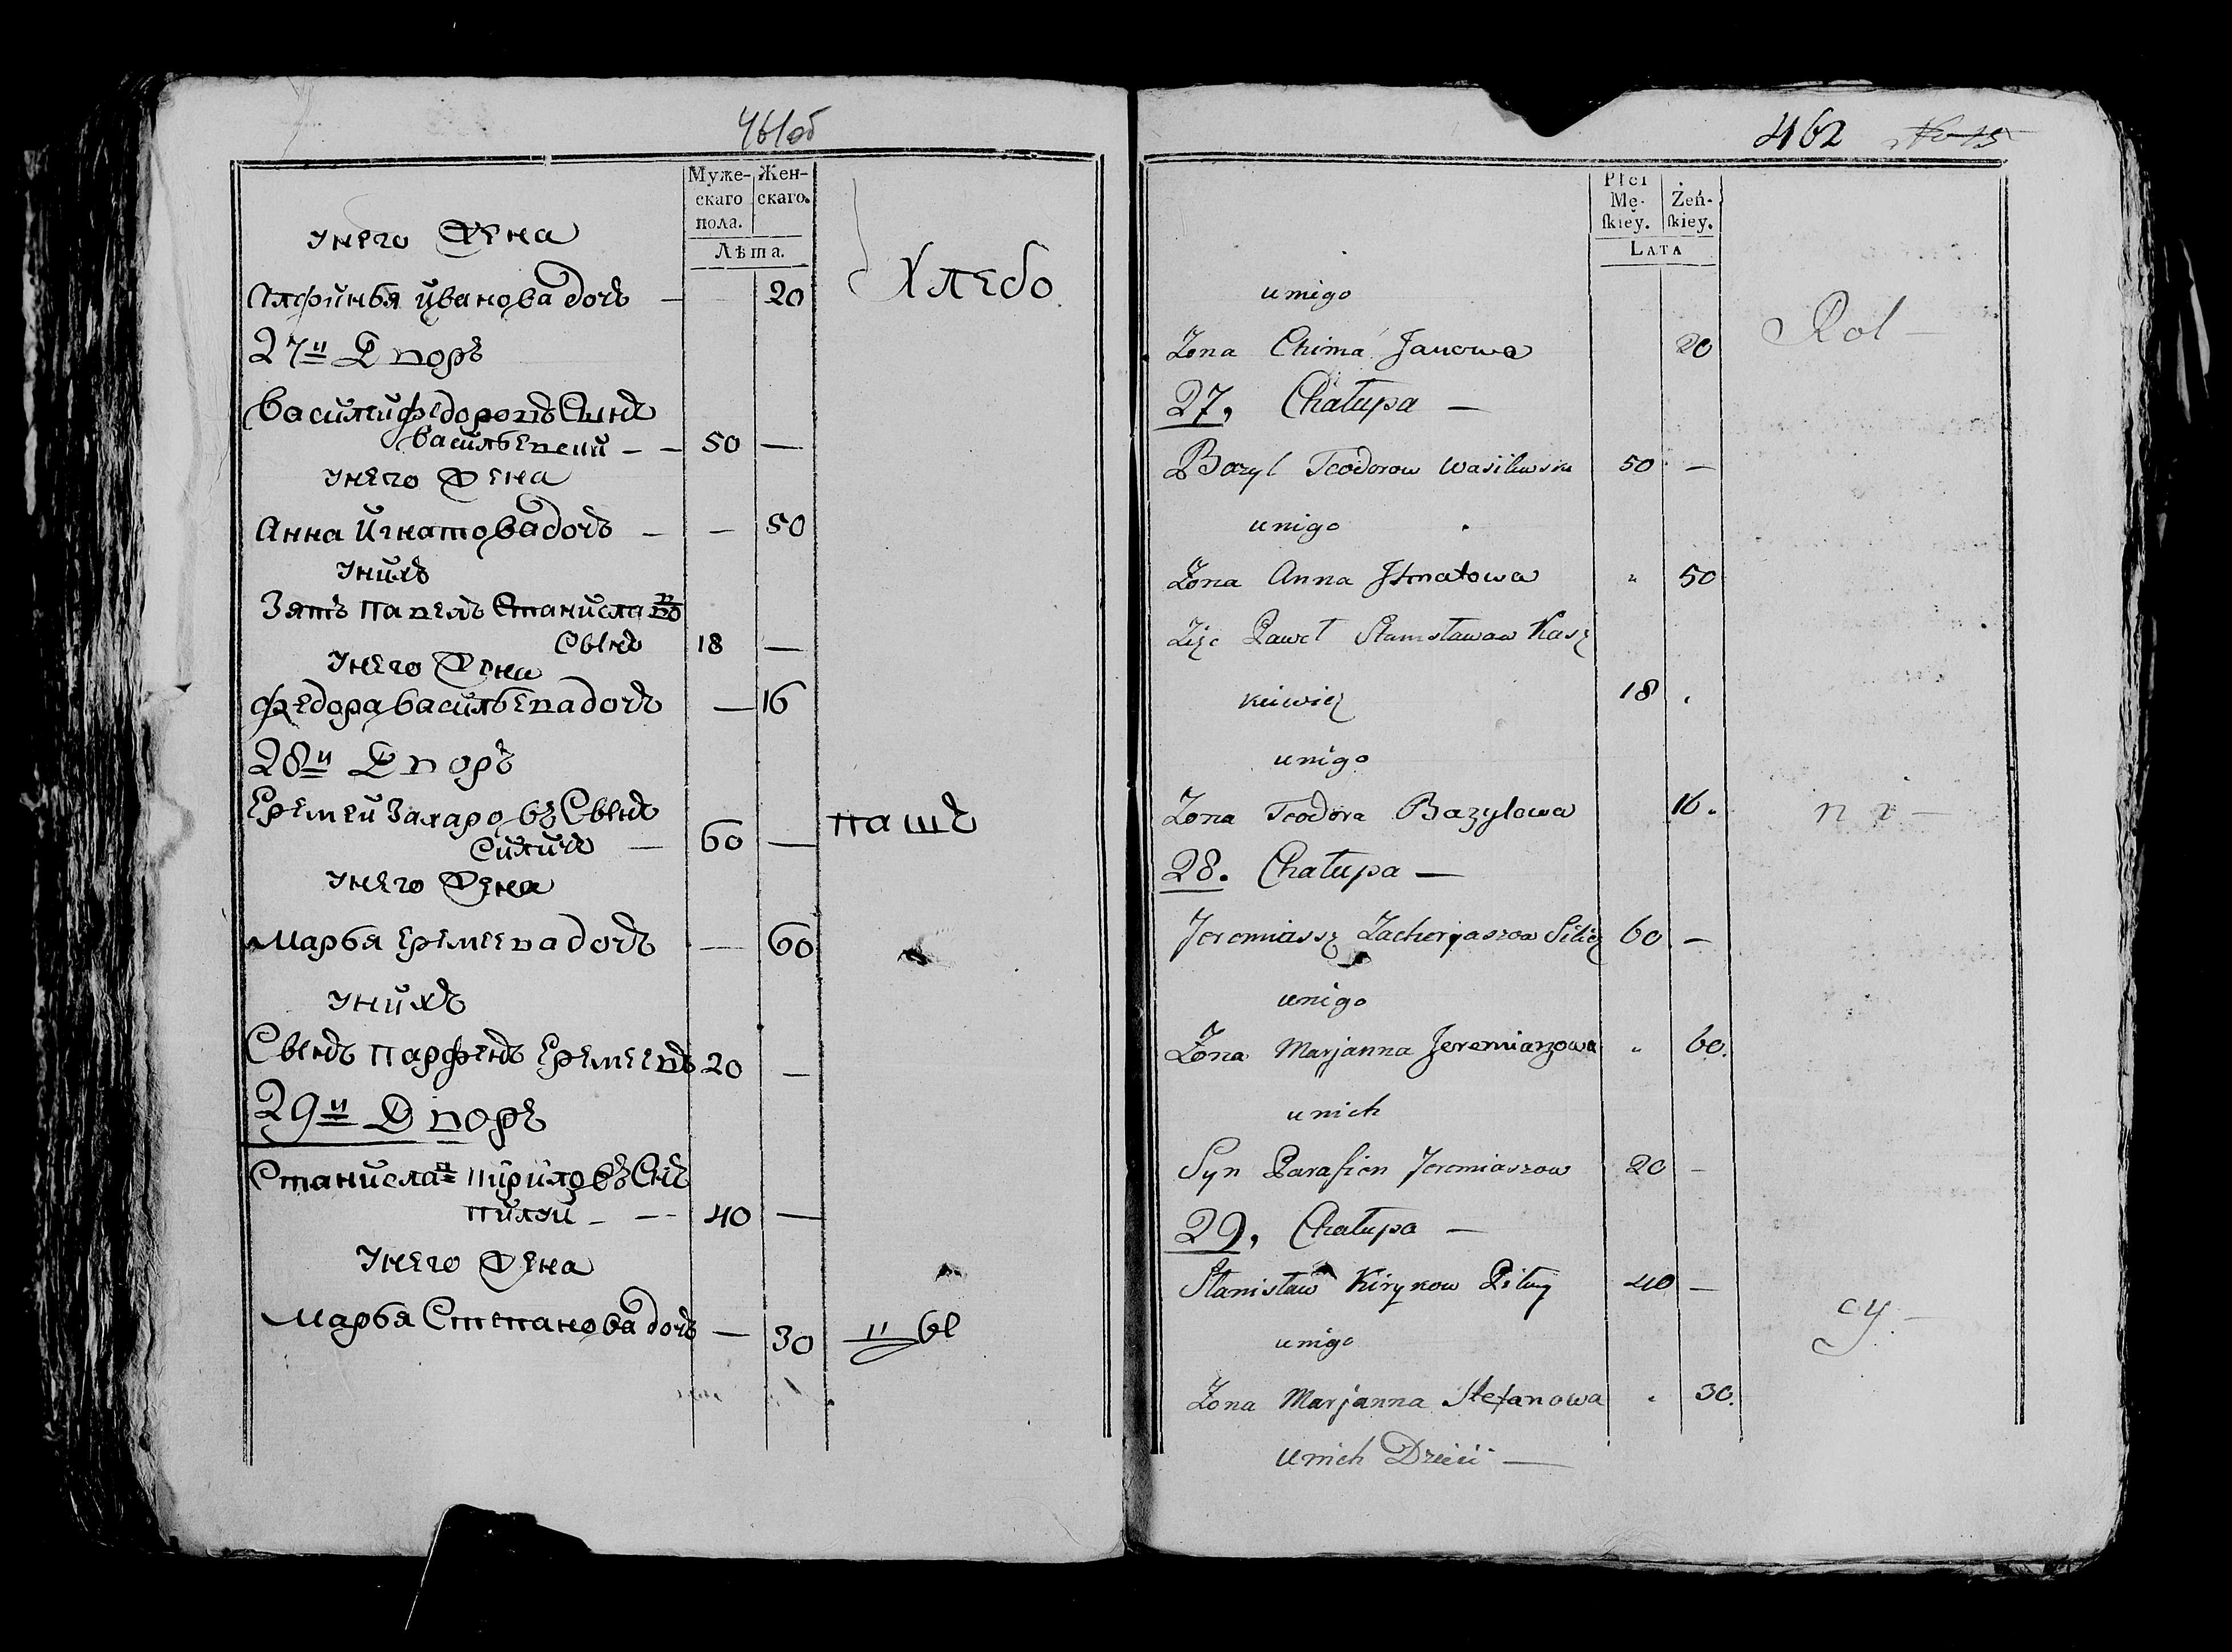 461об
Муже- Жен-
скаго скаго.
пола.
Лѣта.
унего Жена
Иванова дочъ — 20
Хлебо
27й Дворъ
Василий Федоровъ Сынъ
Васильевский — — 50 —
унего Жена
Анна Игнатова дочъ — — 50
унихъ
Зять Павелъ Станиславо
Сынъ 18 —
унего Жена
Федора Васильева дочъ — 16
28й Дворъ
Еремей Захаровъ Сынъ
Силичъ — 60 —
пашъ
унего Жена
Марья Еремеева дочъ — 60
унихъ
Сынъ Парфенъ Еремеевъ 20 —
29й Дворъ
Станиславъ Кириловъ Снъ
Пилуй — — 40 —
унего Жена
Марья Степанова дочъ — 30
цы
462 No 15
Płci
Mę- Żeń-
skiey. skiey.
LATA
unigo
Żona Chima Janowa 20
Rol —
27, Chałupa —
Bazyl Teodorow Wasilewski 50 —
unigo
Żona Anna Ihnatowa " 50
Zięc Paweł Stanisławow Kasz
kiewicz 18 .
unigo
Żona Teodora Bazylowa 16.
ni —
28. Chałupa —
Jeremiasz Zacheryaszow Silicz 60 —
unigo
Żona Marjanna Jeremiaszowa " 60.
unich
Syn Parafien Jeremiaszow 20 —
29, Chałupa —
Stanisław Kiryłow Piłuy 40 —
cy. —
unigo
Żona Marjanna Stefanowa " 30.
unich Dzieci —